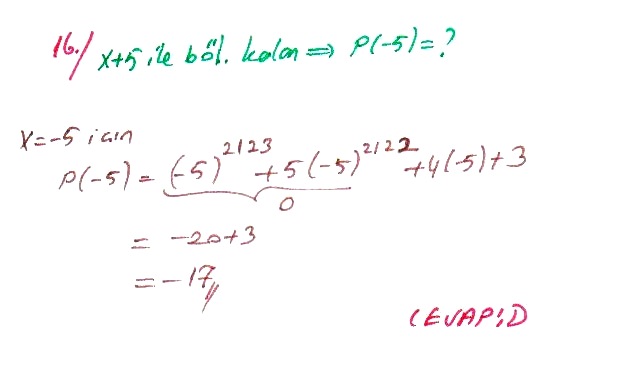 16./ x+5 ile böl. kalan ⇒ P(-5)=?
x=-5 için
P(-5) = (-5)^2123 +5(-5)^2122 +4(-5)+3
0
= -20+3
= -17//
CEVAP:D